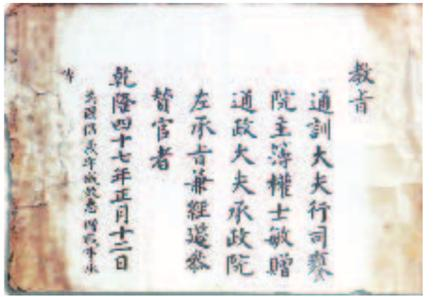 教旨
通訓大夫行司饔
院主簿權士敏贈
通政大夫承政院
左承旨兼經筵參
贊官者
乾隆四十七年正月十二日